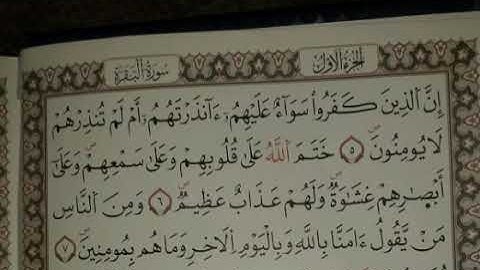 الجزء الأول
سورة البقرة
إِنَّ ٱلذِينَ كَفَرُواْ سَوَآءٌ عَلَيْهِمُۥٓ ءَآنذَرْتَهُمُۥٓ أَمْ لَمْ تُنذِرْهُمْ
لَا يُومِنُونَۖ ٥ خَتَمَ ٱللَّهُ عَلَىٰ قُلُوبِهِمْ وَعَلَىٰ سَمْعِهِمْۖ وَعَلَىٰٓ
أَبْصَٰرِهِمْ غِشَٰوَةٌۖ وَلَهُمْ عَذَابٌ عَظِيمٌۖ ٦ وَمِنَ ٱلنَّاسِ
مَنْ يَّقُولُ ءَامَنَّا بِاللَّهِ وَبِالْيَوْمِ ٱلَاخِرِ وَمَا هُم بِمُومِنِينَۖ ٧